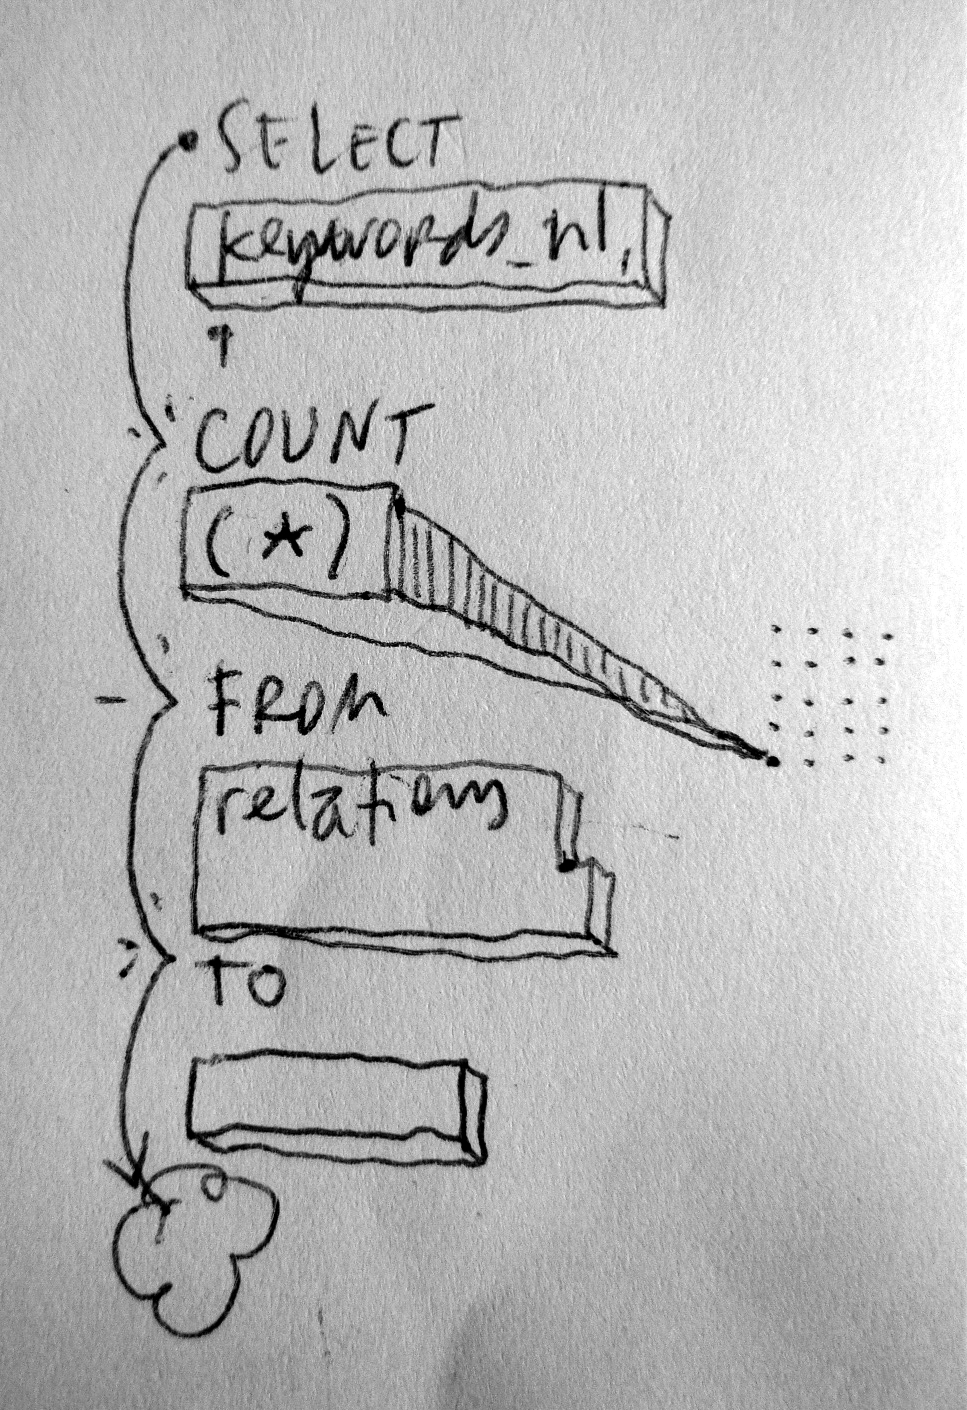 SELECT
keywords_nl,
COUNT
(*)
FROM
relations
TO